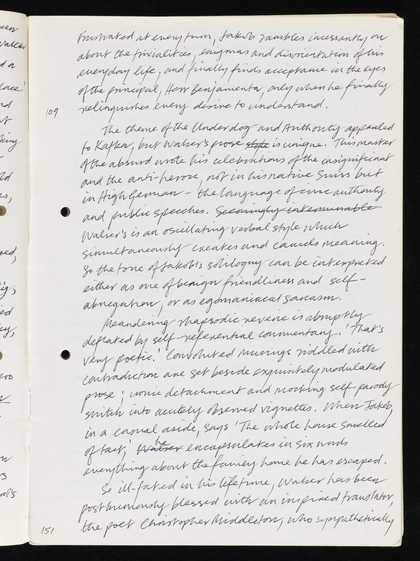 frustrated at every turn, Jakob rambles incessantly on
about the trivialities, enigmas and disorientation of his
everyday life, and finally finds acceptance in the eyes
of the principal, Herr Benjamenta, only when he finally
109 relinquishes every desire to understand.
The theme of the Underdog and Authority appealed
to Kafka, but Walser's prose style is unique. This master
of the absurd wrote his celebrations of the insignificant
and the anti-heroic, not in his native Swiss but
in High German - the language of civic authority
and public speeches. Seemingly interminable
Walser's is an oscillating verbal style which
simultaneously creates and cancels meaning.
So the tone of Jakob's soliloquy can be interpreted
either as one of benign friendliness and self-
abnegation, or as egomaniacal sarcasm.
Meandering rhapsodic reverie is abruptly
deflated by self-referential commentary. 'That's
very poetic.' Convoluted musings riddled with
contradiction are set beside exquisitely modulated
prose; ironic detachment and mocking self-parody
switch into acutely observed vignettes. When Jakob,
in a casual aside, says 'The whole house smelled
of tact,' Walser he encapsulates in six words
everything about the family home he has escaped.
So ill-fated in his lifetime, Walser has been
posthumously blessed with an inspired translator,
151 the poet Christopher Middleton, who sympathetically